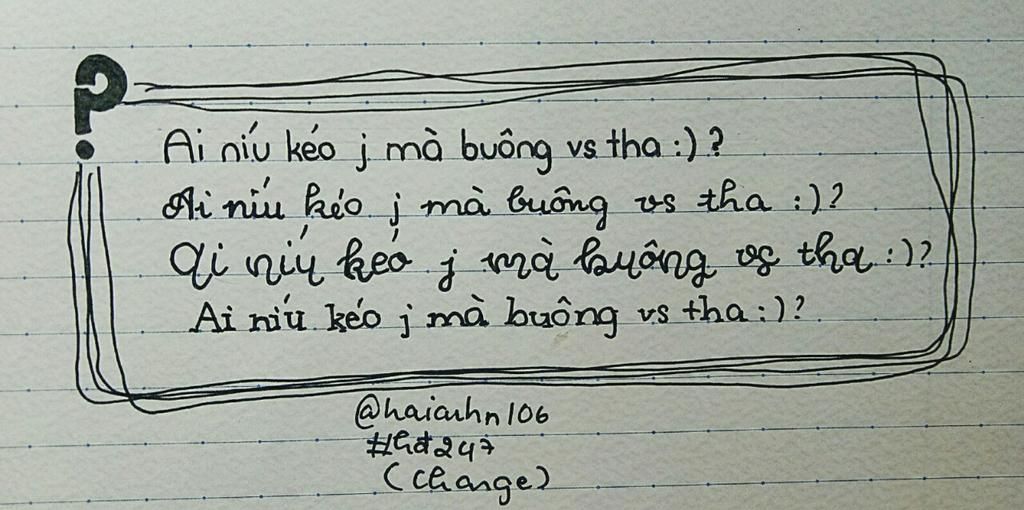 ?
Ai níu kéo j mà buông vs tha :) ?
Ai níu kéo j mà buông vs tha :) ?
Ai níu kéo j mà buông vs tha :) ?
Ai níu kéo j mà buông vs tha :) ?
@haiauhn106
#hd247
(change)